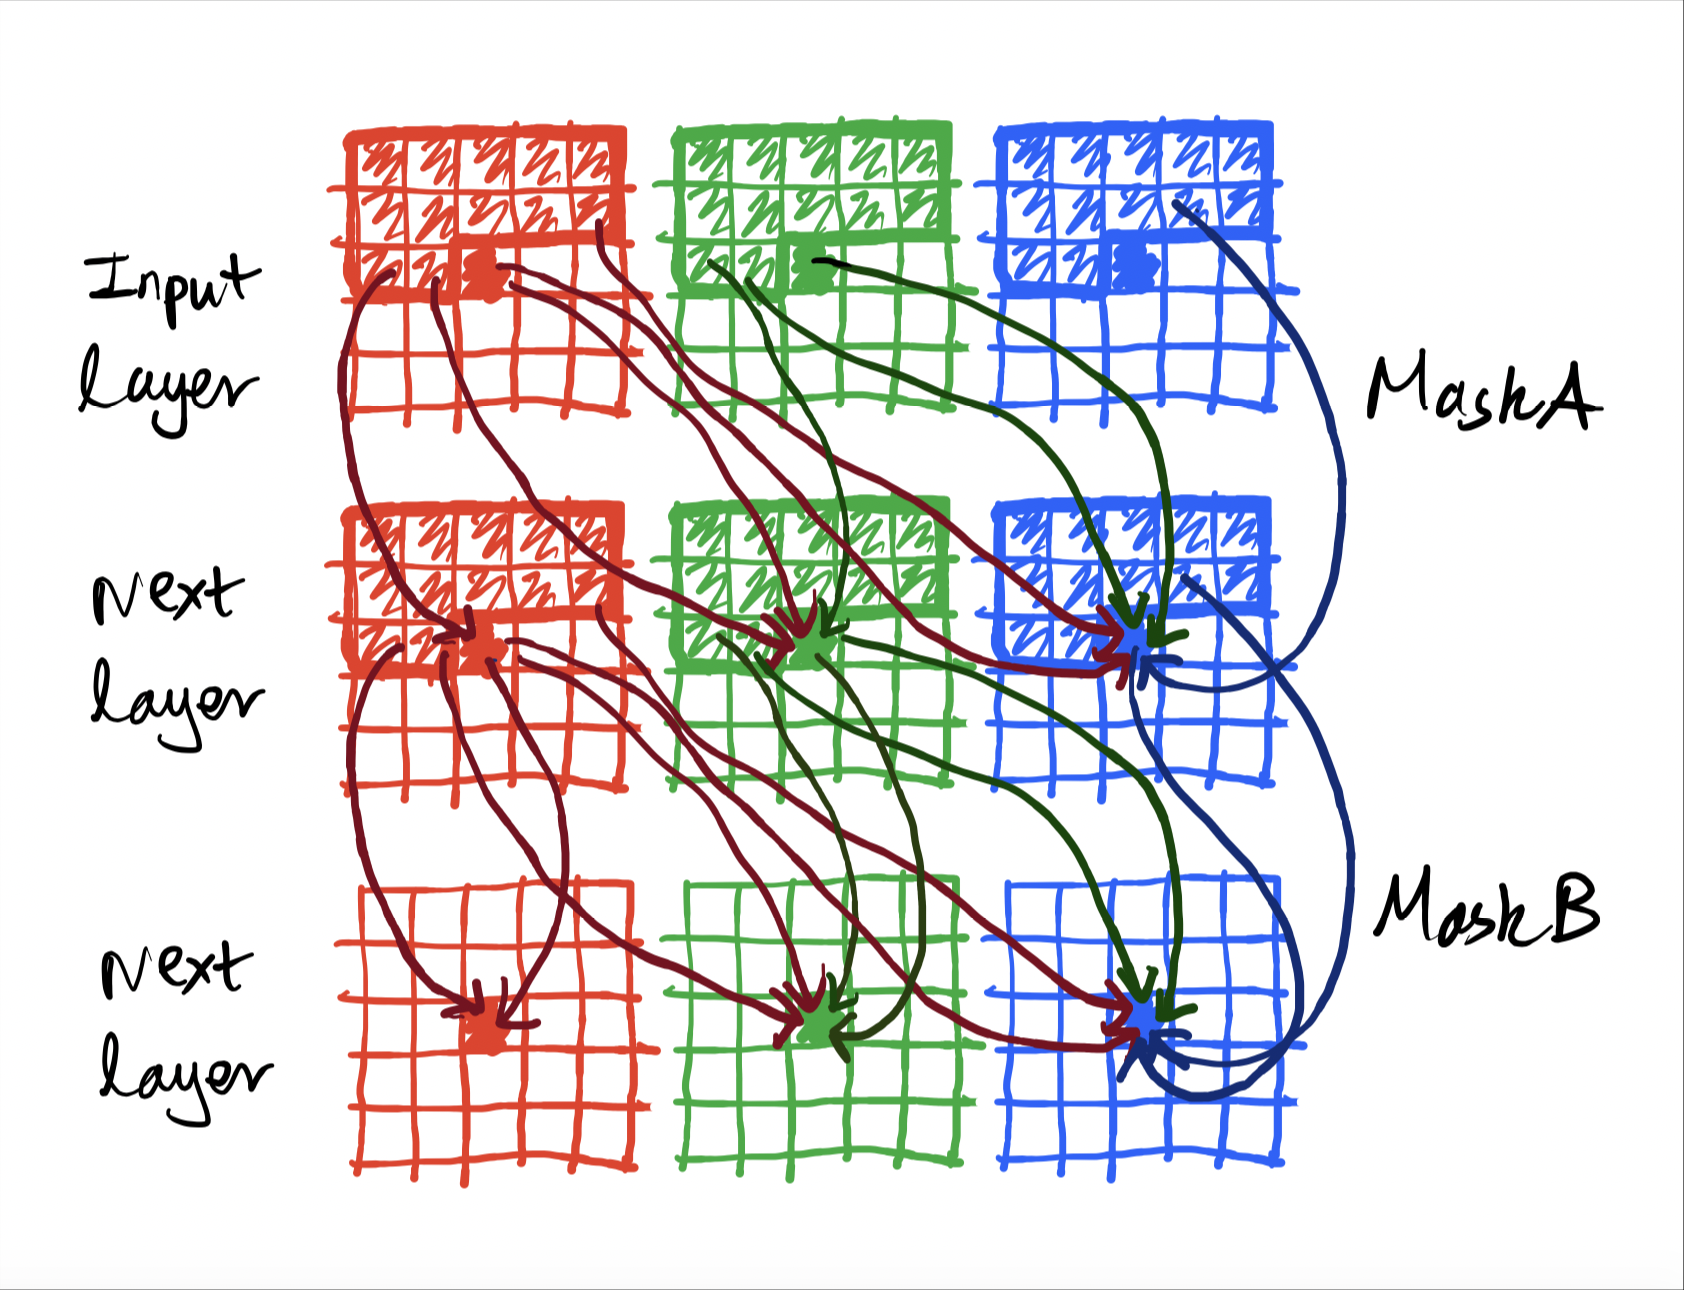 Input
layer
Mask A
Next
layer
Mask B
Next
layer